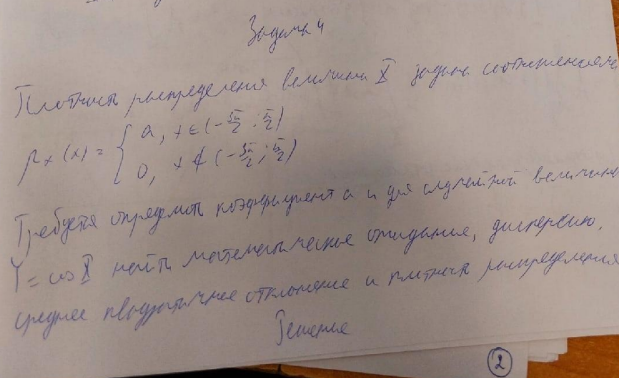 Задача 4
Плотность распределения величины X задана соотношением
px(x) = { a, x ∈ (-π/2; π/2)
0, x ∉ (-π/2; π/2)
Требуется определить коэффициент a и для случайной величины
Y = cos X найти математическое ожидание, дисперсию,
среднее квадратичное отклонение и плотность распределения
Решение
2